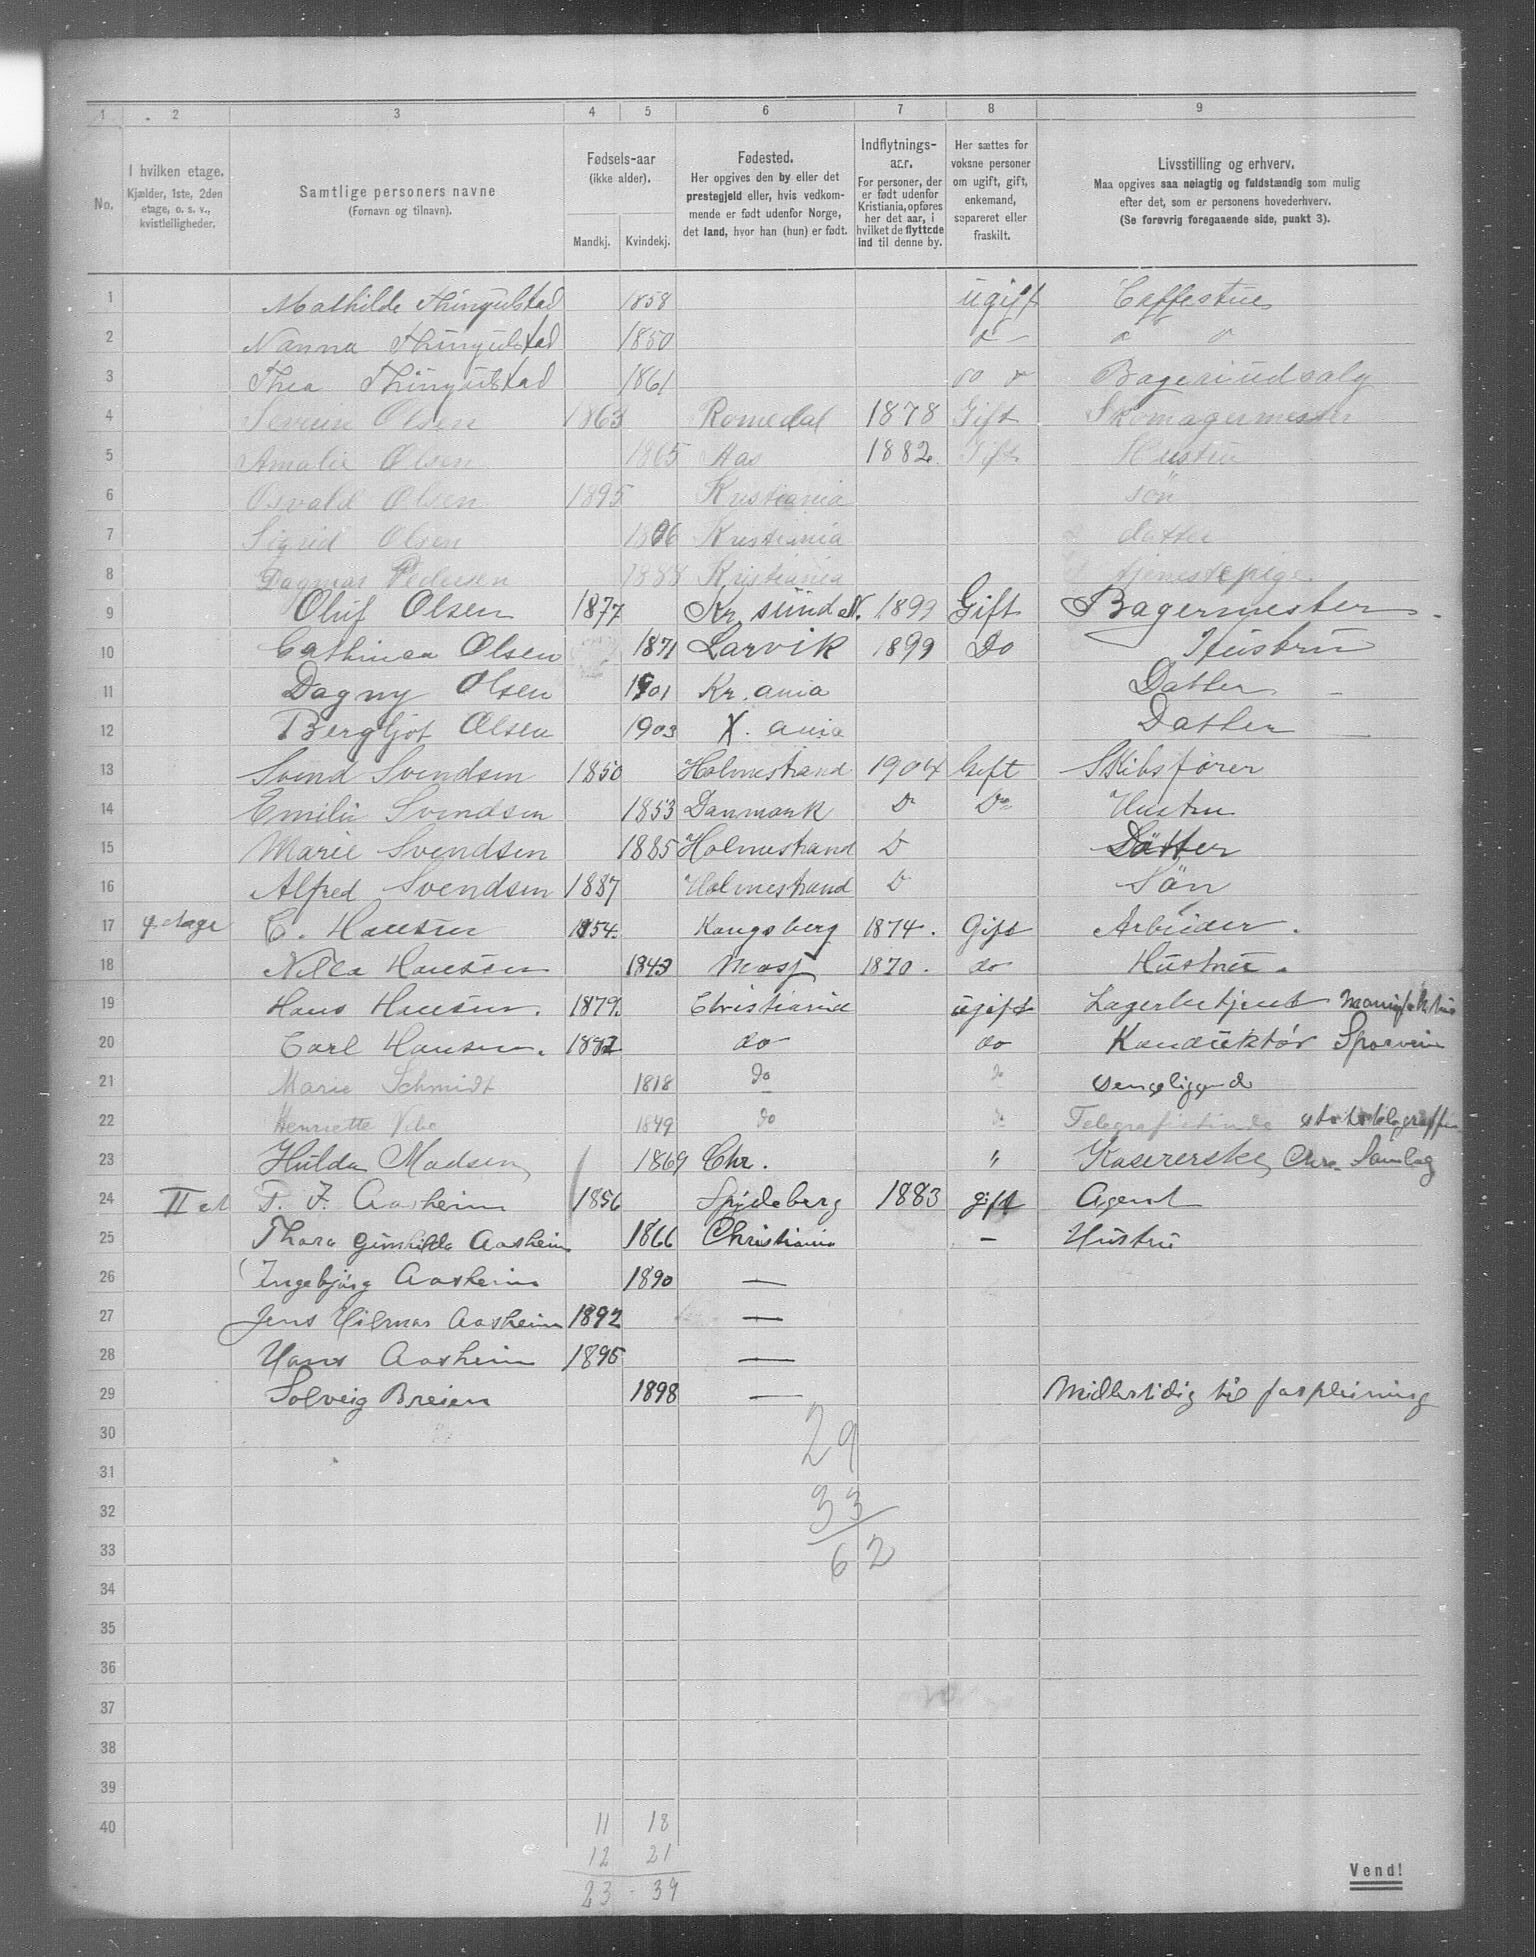 1 2 3 4 5 6 7 8 9
No.
I hvilken etage.
Kjælder, 1ste, 2den
etage, o. s. v.,
kvistleiligheder.
Samtlige personers navne
(Fornavn og tilnavn).
Fødsels-aar
(ikke alder).
Mandkj. Kvindekj.
Fødested.
Her opgives den by eller det
prestegjeld eller, hvis vedkom-
mende er født udenfor Norge,
det land, hvor han (hun) er født.
Indflytnings-
aar.
For personer, der
er født udenfor
Kristiania, opføres
her det aar, i
hvilket de flyttede
ind til denne by.
Her sættes for
voksne personer
om ugift, gift,
enkemand,
separeret eller
fraskilt.
Livsstilling og erhverv.
Maa opgives saa nøiagtig og fuldstændig som mulig
efter det, som er personens hovederhverv.
(Se forøvrig foregaaende side, punkt 3).
1 Mathilde Thingulstad 1858 ugift Caffestue
2 Nanna Thingulstad 1850
3 Thea Thingulstad 1861 Bageriudsalg
4 Severin Olsen 1863 Romedal 1878 Gift Skomagermester
5 Amalie Olsen 1865 Aas 1882. Gift Hustru
6 Osvald Olsen 1895 Kristiania søn
7 Sigrid Olsen Kristiania datter
8 Dagmar Pedersen 1888 Kristiania tjenestepige
9 Oluf Olsen 1877 Kr. sund N. 1899 Gift Bagermester
10 Cathinca Olsen 1871 Larvik 1899 Do Hustru
11 Dagny Olsen 1901 Kr. ania Datter
12 Bergljot Olsen 1903 X. ania Datter
13 Svend Svendsen 1850 Holmestrand 1904 Gift Skibsfører
14 Emilie Svendsen 1853 Danmark Do Do Hustru
15 Marie Svendsen 1885 Holmestrand D Datter
16 Alfred Svendsen 1887 Holmestrand D Søn
17 4 etage C. Hansen 1854. Kongsberg 1874. Gift Arbeider.
18 Nilla Hansen 1843 Moss 1870. do Hustru.
19 Hans Hansen. 1879. Christiania ugift Lagerbetjent
20 Carl Hansen. 1882 do do Konduktør Sporvei
21 Marie Schmidt 1818 do do sengeliggende
22 Henriette Vibe 1849 do do Telegrafistinde
23 Hulda Madsen 1869 Chr. " Kasererske, Chra. Samlag
24 II et P. F. Aasheim 1856 Spydeberg 1883 gift Agent
25 Thora Gunhilda Aasheim 1866 Christiania — Hustru
26 Ingebjørg Aasheim 1890 —
27 Jens Hilmar Aasheim 1892 —
28 Hans Aasheim 1895 —
29 Solveig Breien 1898 — Midlertidig til forpleining
30 29
31
32 33
33 62
34
35
36
37
38
39
40 11 18
12 21
23 - 39
Vend!